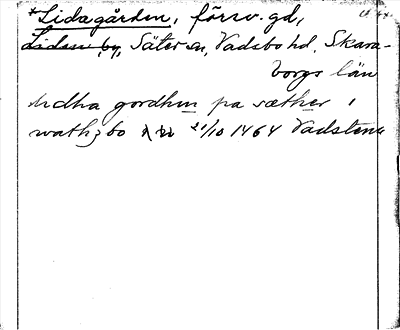 *Lidagården, försv. gd,
Liden by, Säter sn, Vadsbo hd, Skara-
borgs län
lidha gordhin pa sæther i
wathzbo 21/10 1464 Vadstena